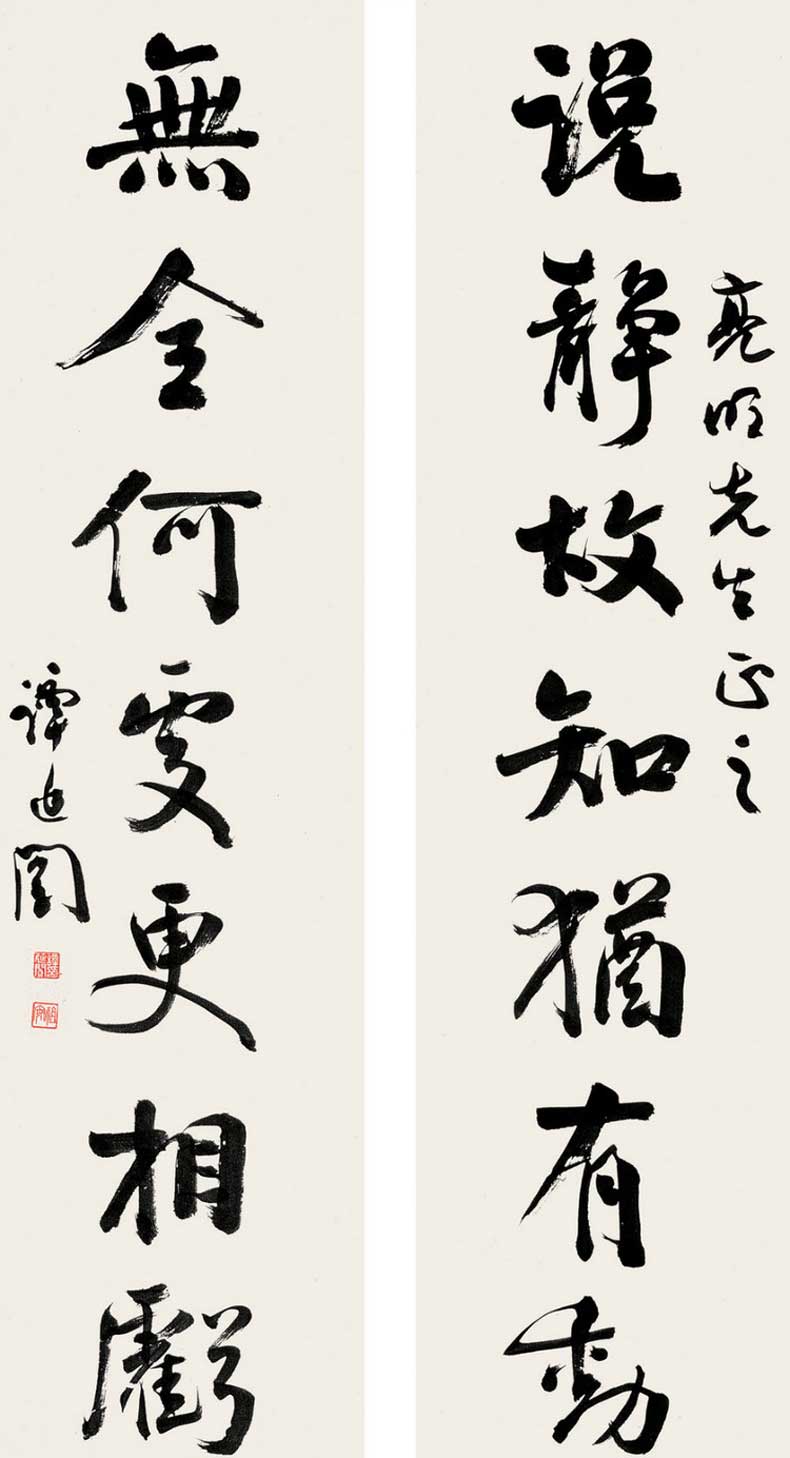 亮明先生正之
說靜故知猶有動
無全何處更相虧
譚延闓